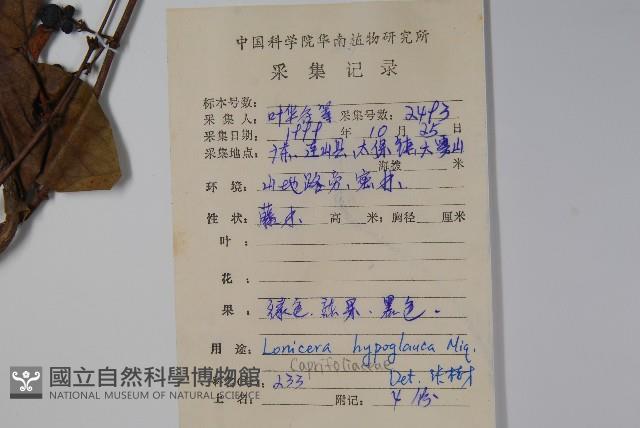 中国科学院华南植物研究所
采集记录
标本号数：
采集人：叶华谷等 采集号数：2493
采集日期：1999年10月25日
采集地点：广东、连山县、太保镇、大雾山
海拨 米
环境：山地路旁、密林．
性状：藤木 高 米；胸径 厘米
叶：
花：
果：绿色．熟果．黑色．
用途：Lonicera hypoglauca Miq.
Caprifoliaceae
233 Det.
土名： 附记：4份
國立自然科學博物館
NATIONAL MUSEUM OF NATURAL SCIENCE